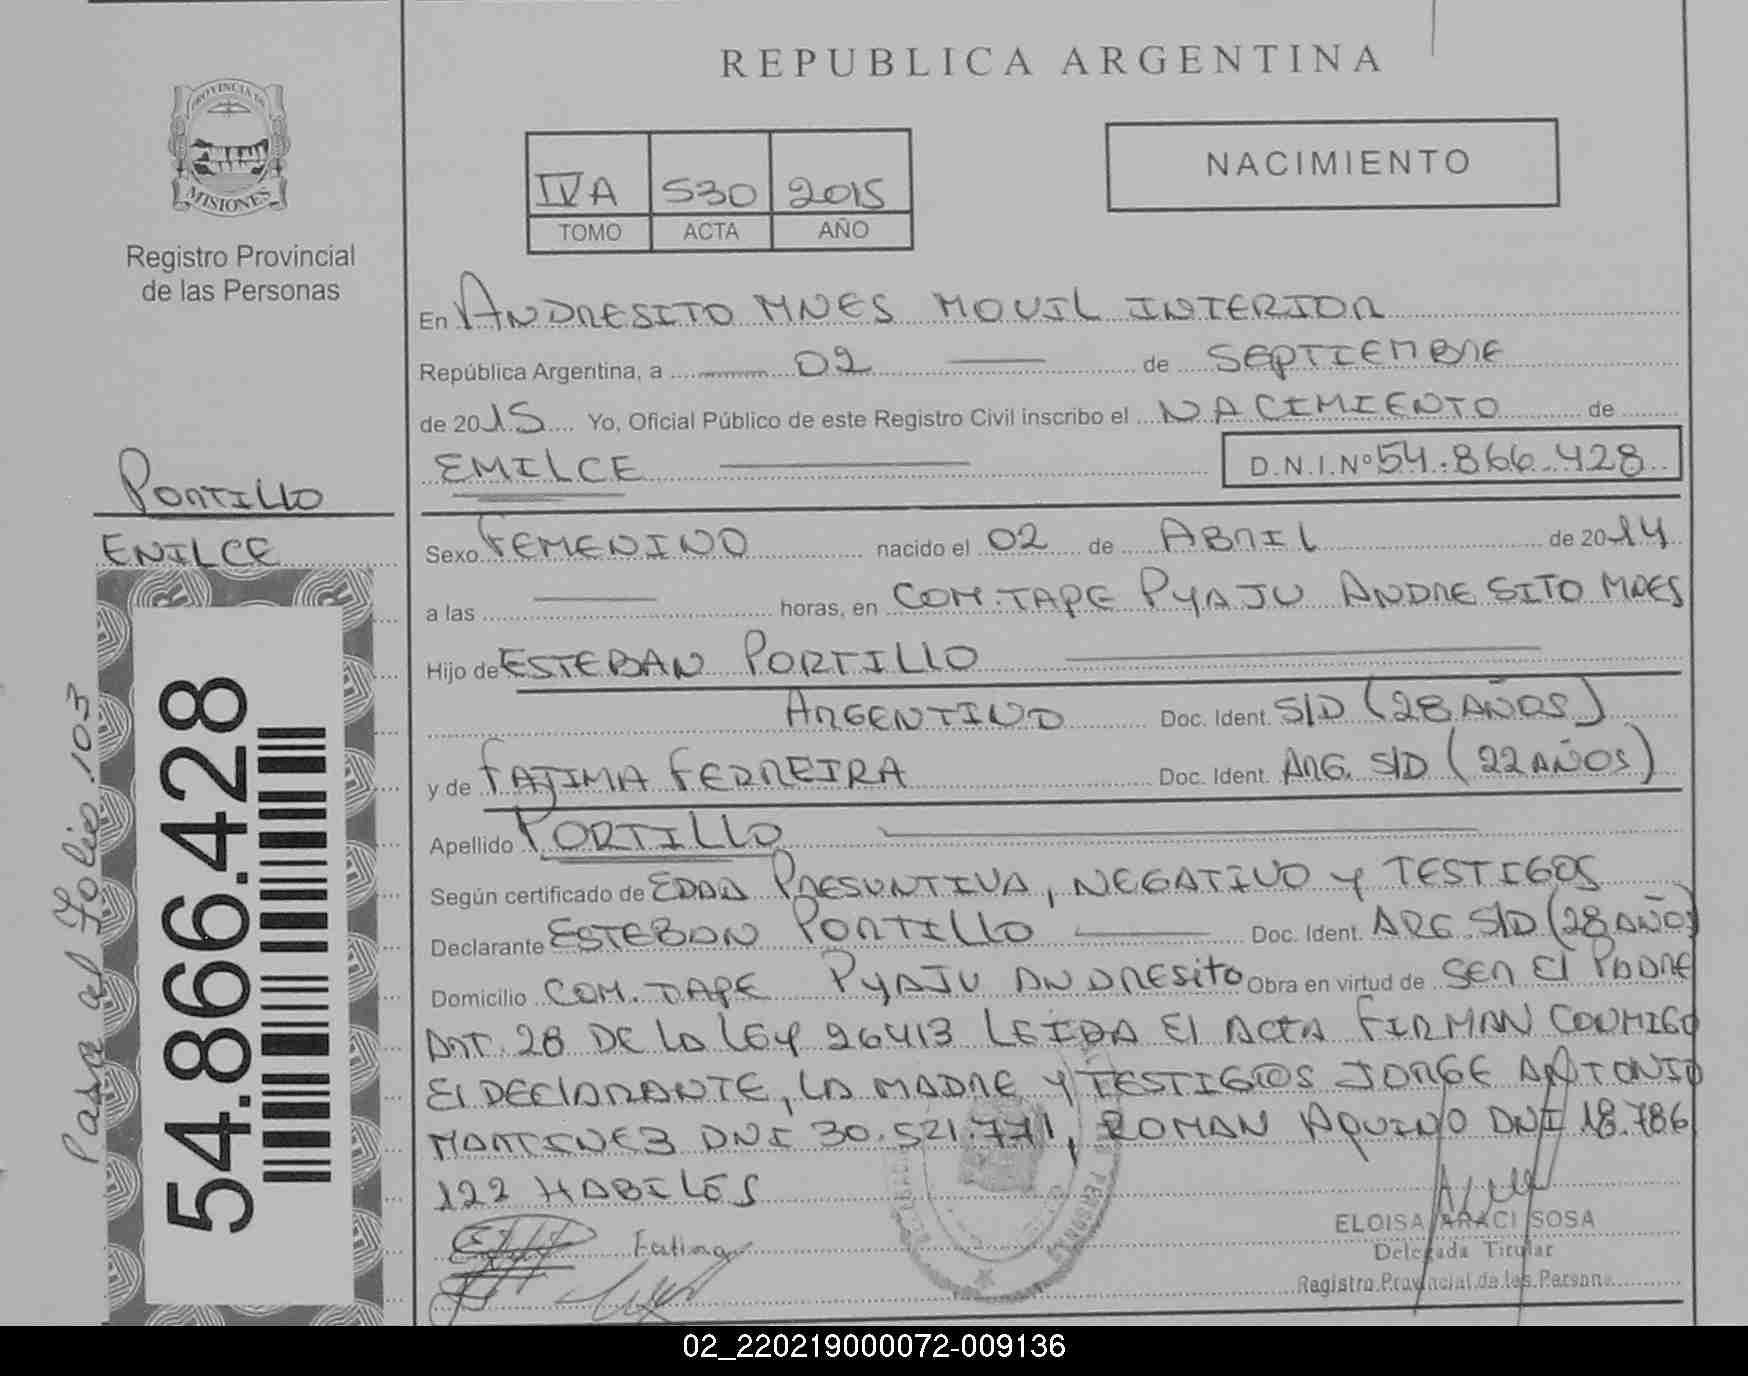 REPUBLICA ARGENTINA
PROVINCIA DE
MISIONES
Registro Provincial
de las Personas
IVA 530 2015
TOMO ACTA AÑO
NACIMIENTO
En ANDRESITO MNES MOVIL INTERIOR
República Argentina, a 02 de SEPTIEMBRE
de 2015 Yo, Oficial Público de este Registro Civil inscribo el NACIMIENTO de
EMILCE D.N.I.Nº 54.866.428
PORTILLO
EMILCE
Sexo FEMENINO nacido el 02 de ABRIL de 2014
a las horas, en COM. TAPE PYAJU ANDRESITO MNES
Hijo de ESTEBAN PORTILLO
ARGENTINO Doc. Ident. S/D (28 AÑOS)
y de FATIMA FERREIRA Doc. Ident. ARG. S/D (22 AÑOS)
Apellido PORTILLO
Según certificado de EDAD PRESUNTIVA, NEGATIVO y TESTIGOS
Declarante ESTEBAN PORTILLO Doc. Ident. ARG. S/D (28 AÑOS)
Domicilio COM. TAPE PYAJU ANDRESITO Obra en virtud de SER El PADRE
ART. 28 DE LA LEY 26413 LEIDA El ACTA FIRMAN CONMIGO
El DEClARANTE, LA MADRE Y TESTIGOS JORGE ANTONIO
MARTINEZ DNI 30.521.771, ROMAN AQUINO DNI 18.786
122 HABILES
Fatima
ELOISA ARACI SOSA
Delegada Titular
Registro Provincial de las Persona
54.866.428
Pasa al Folio 103
02_220219000072-009136